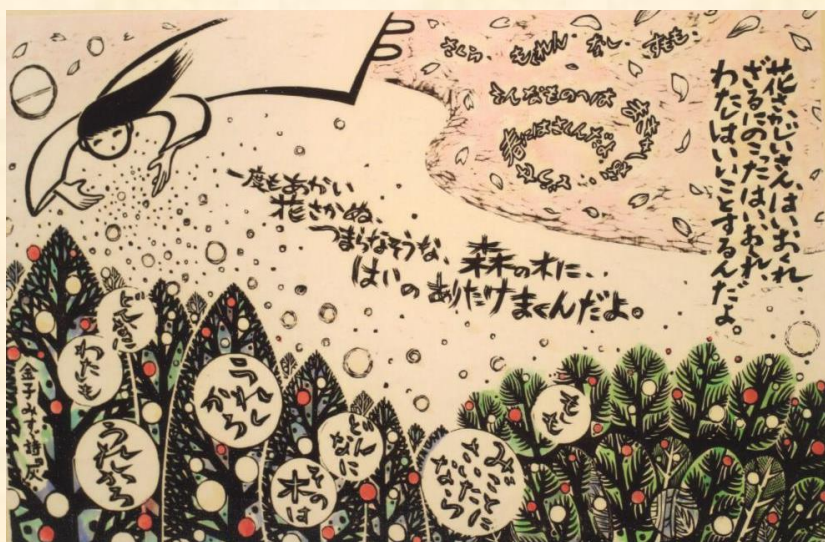 花さかじいさん、はいおくれ、
ざるにのこったはいおくれ、
わたしはいいことするんだよ。
さくら、もくれん、なし、すもも、
そんなものへは
まきゃしない、
どうせ
春にはさくんだよ
一度もあかい
花さかぬ、
つまらなそうな、森の木に、
はいのありたけまくんだよ。
もしも
みごとに
さいたなら
どんなに
その
木は
うれし
かろ
どんなに
わたしも
うれしかろ
金子みすゞ詩 灰